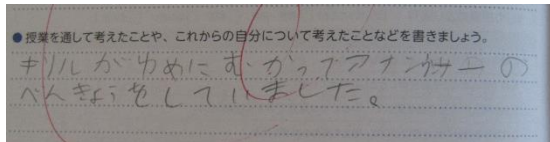 ●授業を通して考えたことや、これからの自分について考えたことなどを書きましょう。
キリルがゆめにむかってアナンサーの
べんきょうをしていました。